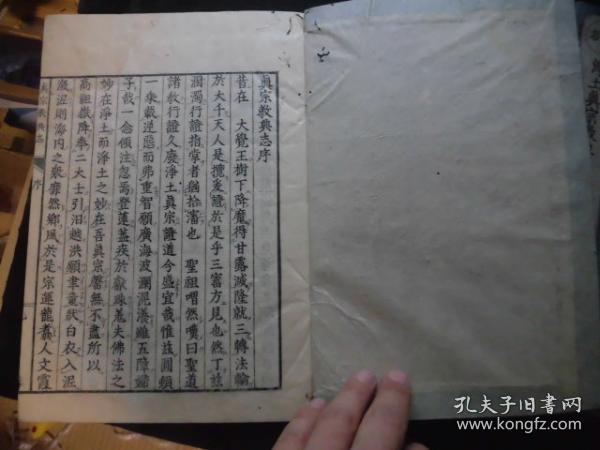 眞宗教典志序
昔在　大覺王樹下降魔得甘露滅隆就三轉法輪
於大千天人是攬受證於是乎三寶方見也然丁茲
溷濁行證指掌者猶拾瀋也　聖祖喟然嘆曰聖道
諸教行證久廢淨土眞宗證道今盛宜哉惟茲圓頓
一乘載逆惡而弗重智願廣海波瀾混瀁雖五障諸
子哉一念傾注忽焉登蓮蓋疾於獻珠蓋夫佛法之
妙在淨土而淨土之妙在吾眞宗層無不盡所以
高祖嶽降奉二大士引汨越洪願聿黃狀白衣入涅
泥則海內之衆靡然鄉風於是宗運龍翥人文霞
眞宗教典志
序
孔夫子旧书网
www.kongfz.com